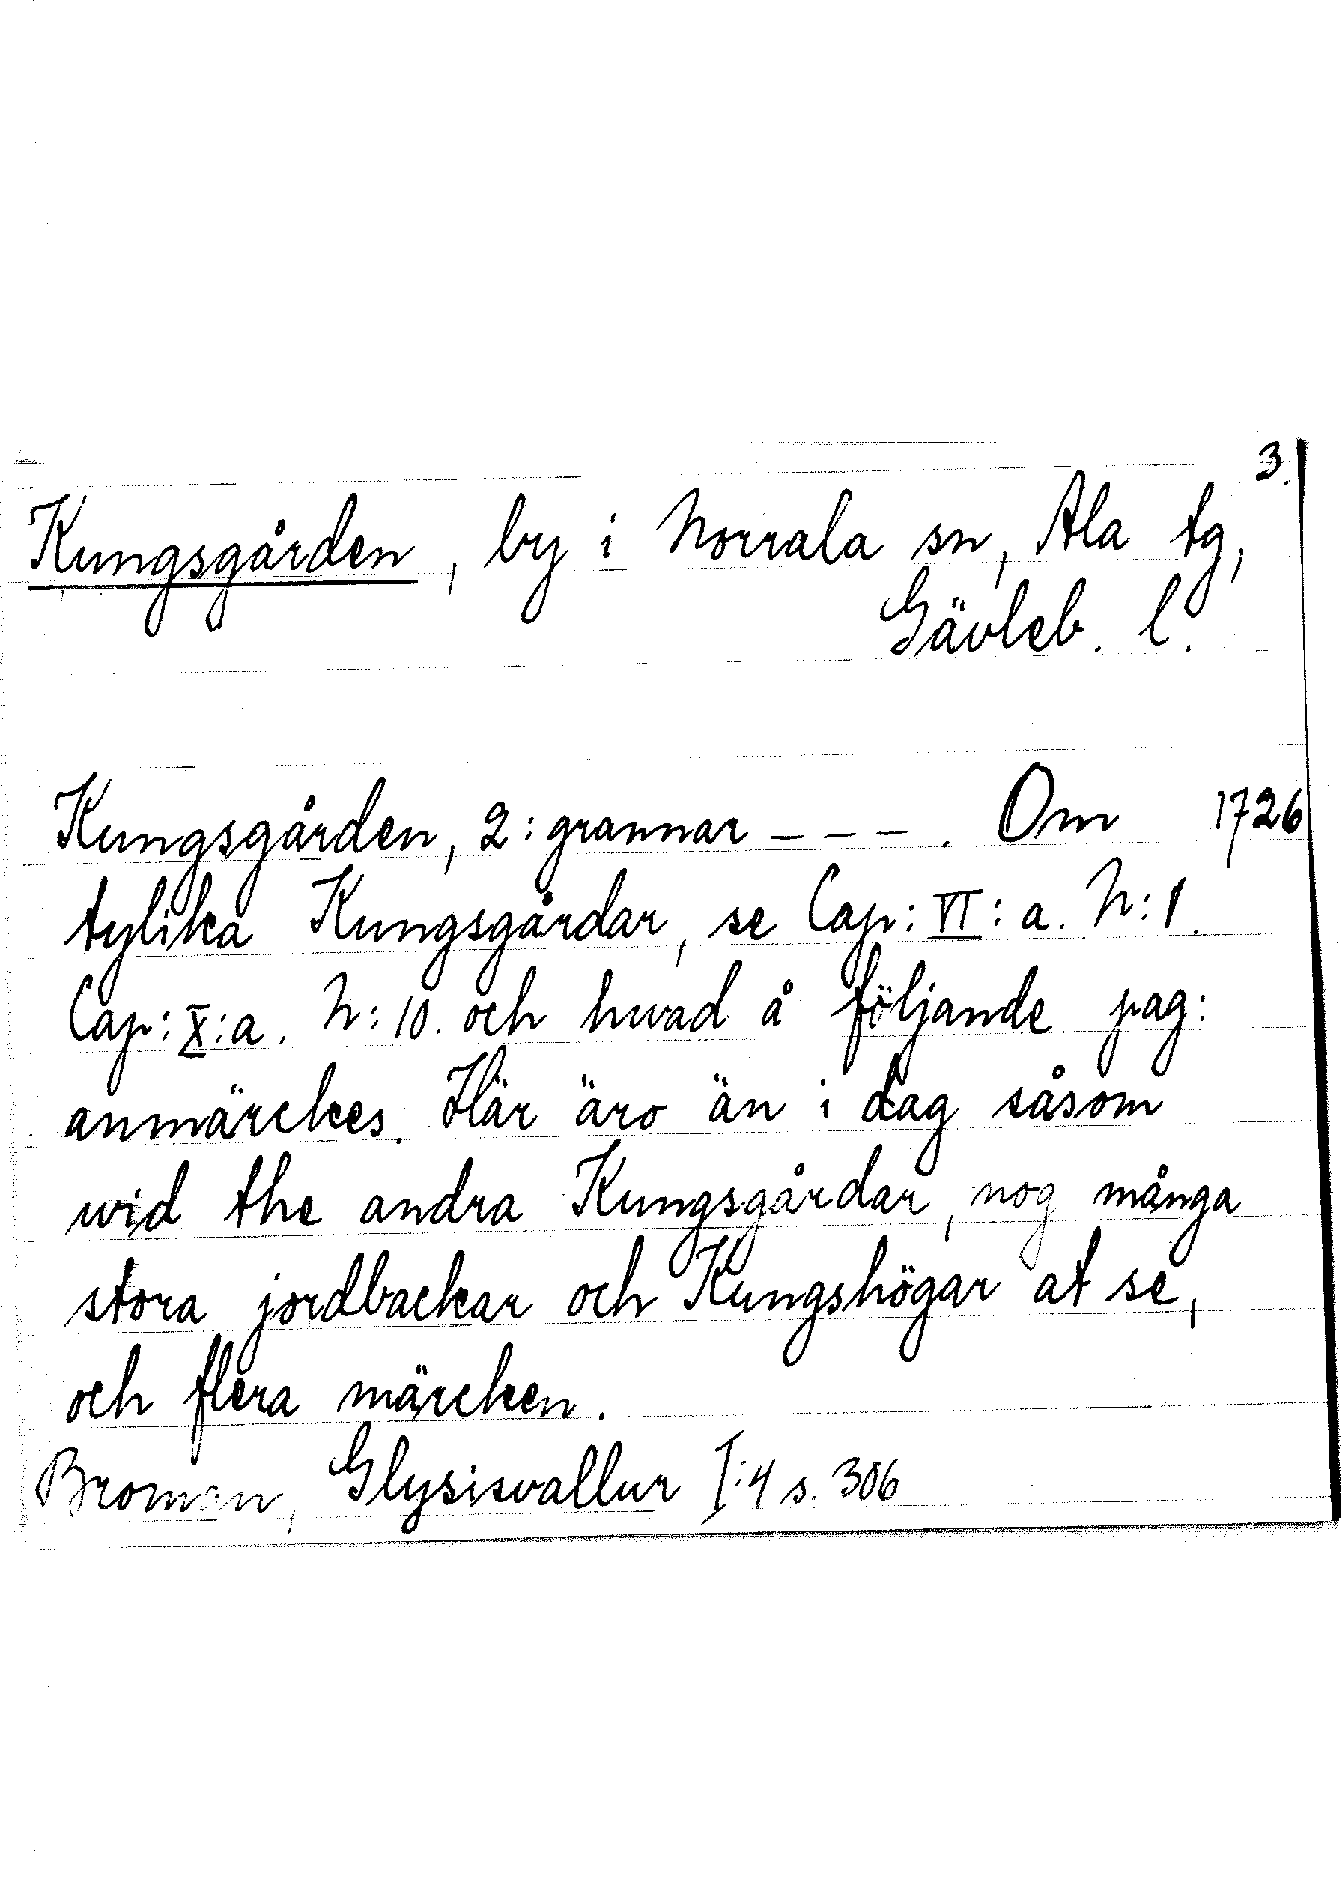 3.
Kungsgården, by i Norrala sn, Ala tg,
Gävleb. l.
Kungsgården, 2: grannar – – – . Om 1726
tylika Kungsgårdar, se Cap: VI: a. N: 1.
Cap: X: a. N: 10. och hwad å följande pag:
anmärckes. Här äro än i dag såsom
wid the andra Kungsgårdar, nog många
stora jordbackar och Kungshögar at se,
och flera märcken.
Broman, Glysisvallur I:4 s. 306